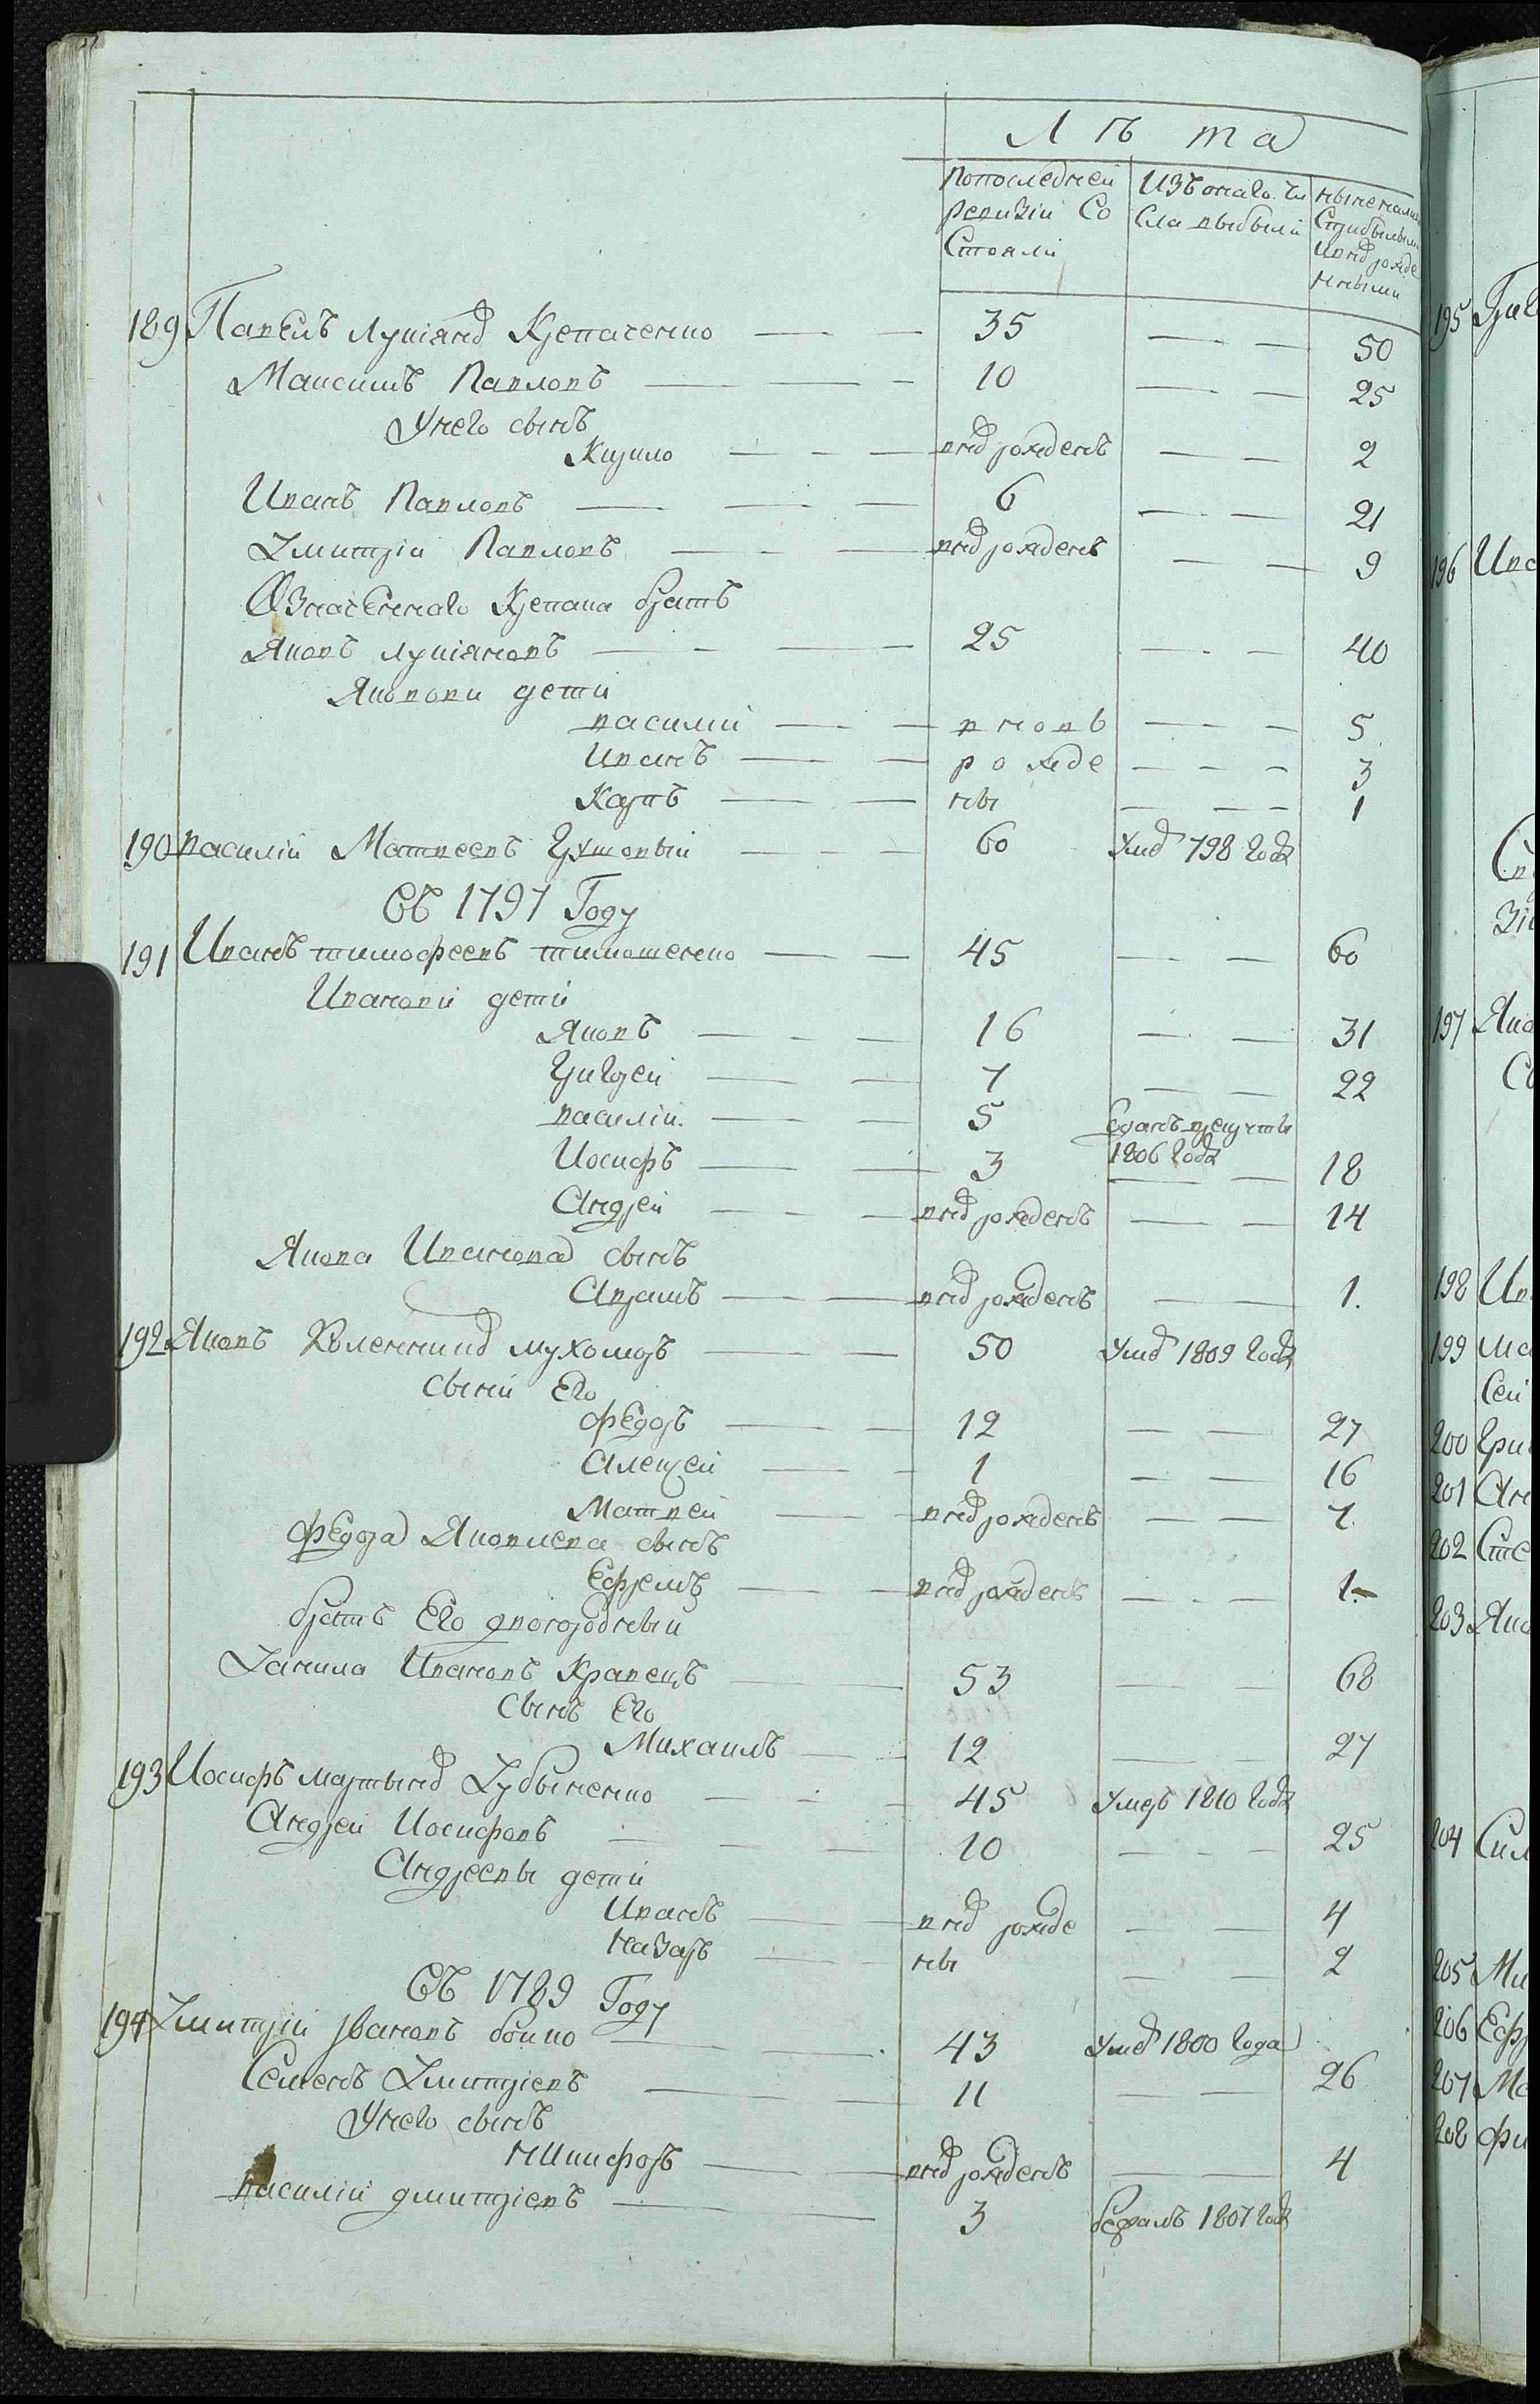 Лѣта
Попоследней Ревизіи Состояли
Изъ онаго числа выбыли
ныне налицо
Сприбылыми
ивновь рожде
нными
189 Павелъ лукіянов Крепаченко — 35 — 50
Максимъ Павловъ — 10 — 25
Унего сынъ
Кирило — вновь рожденъ — 2
Иванъ Павловъ — 6 — 21
Дмитрій Павловъ — вновь рожденъ — 9
Означенного Крепака братъ
Яковъ лукіяновъ — 25 — 40
Якововы дети
василій — вновь — 5
Иванъ — рожде — 3
Карпъ — ны — 1
190 василій Матвеевъ — 60 умер 798 года
Съ 1797 Году
191 Иванъ тимофеевъ тимошенко — 45 — 60
Ивановы дети
Яковъ — 16 — 31
Григорей — 7 — 22
василій — 5 Сданъ врекруты
1806 года
Иосифъ — 3 — 18
Андрей — вновь рожденъ — 14
Якова Иванова сынъ
Аврамъ — вновь рожденъ — 1.
192 Яковъ мухомеръ — 50 умер 1809 года
сыны Его
Федоръ — 12 — 27
Алексей — 1 — 16
Матвей — вновь рожденъ — 7.
Федора Яковлева сынъ
Ефремъ — вновь рожденъ — 1.
братъ Его двоюродный
Данила Ивановъ Кравецъ — 53 — 68
Сынъ Его
Михаилъ — 12 — 27
193 Иосифъ мартынов Дубыненко — 45 умеръ 1810 года
Андрей Иосифовъ — 10 — 25
Андреевы дети
Иванъ — вновь рожде — 4
Назаръ — ны — 2
Съ 1789 Году
194 Дмитрій Ивановъ бойко — 43 умер 1800 года
Семенъ Дмитріевъ — 11 — 26
Унего сынъ
Никифоръ — вновь рожденъ — 4
василій дмитріевъ — 3 бежалъ 1807 года
195
196 Ива
197 Яко
198 Ив
199
200 Гри
201 Ан
202 Сте
203 Яко
204 Сил
205 Ми
206 Ефр
207
208 фи